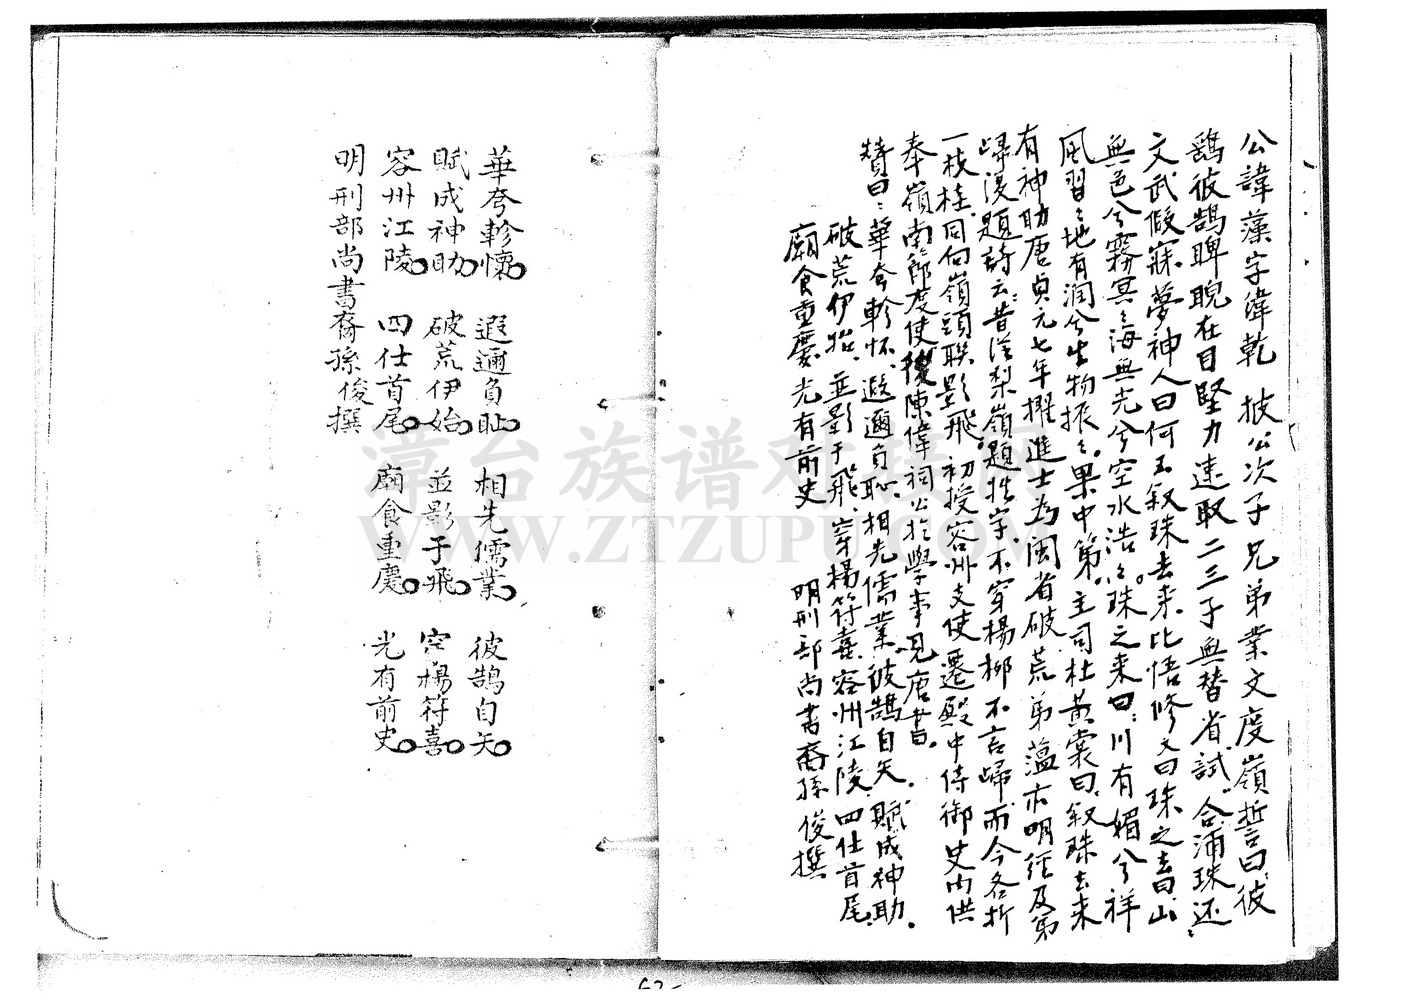 公諱藻字偉乾 披公次子兄弟業文度嶺誓曰彼
鵠彼鵠睥睨在目堅力速取二三子無替省試合浦珠还
文武假寐夢神人曰何不叙珠去来比悟修文曰珠之去曰山
無色兮霧冥々海無光兮空水浩々珠之来曰川有媚兮祥
風習々地有润兮生物振々果中第主司杜黄裳曰叙珠去来
有神助唐贞元七年擢進士為闽省破荒弟藴亦明经及第
歸没題詩云昔
梨嶺題
字不穿楊柳不言歸而今各折
一枝桂同向嶺頭联影飛初授容州支使遷殿中侍御史内供
奉嶺南節度使後陳偉祠公於學事見唐書
贊曰華夸軫怀遐邇負恥相先儒業彼鵠自矢赋成神助
破荒伊始並影于飛穿楊符喜容州江陵四仕首尾
廟食重慶光有前史 明刑部尚書裔孫俊撰
華夸軫懷 遐邇負耻 相先儒業 彼鵠自矢
賦成神助 破荒伊始 並影于飛 穿楊符喜
容州江陵 四仕首尾 廟食重慶 光有前史
明刑部尚書裔孫俊撰
潭台族谱对接网
WWW.ZTZUPU.COM